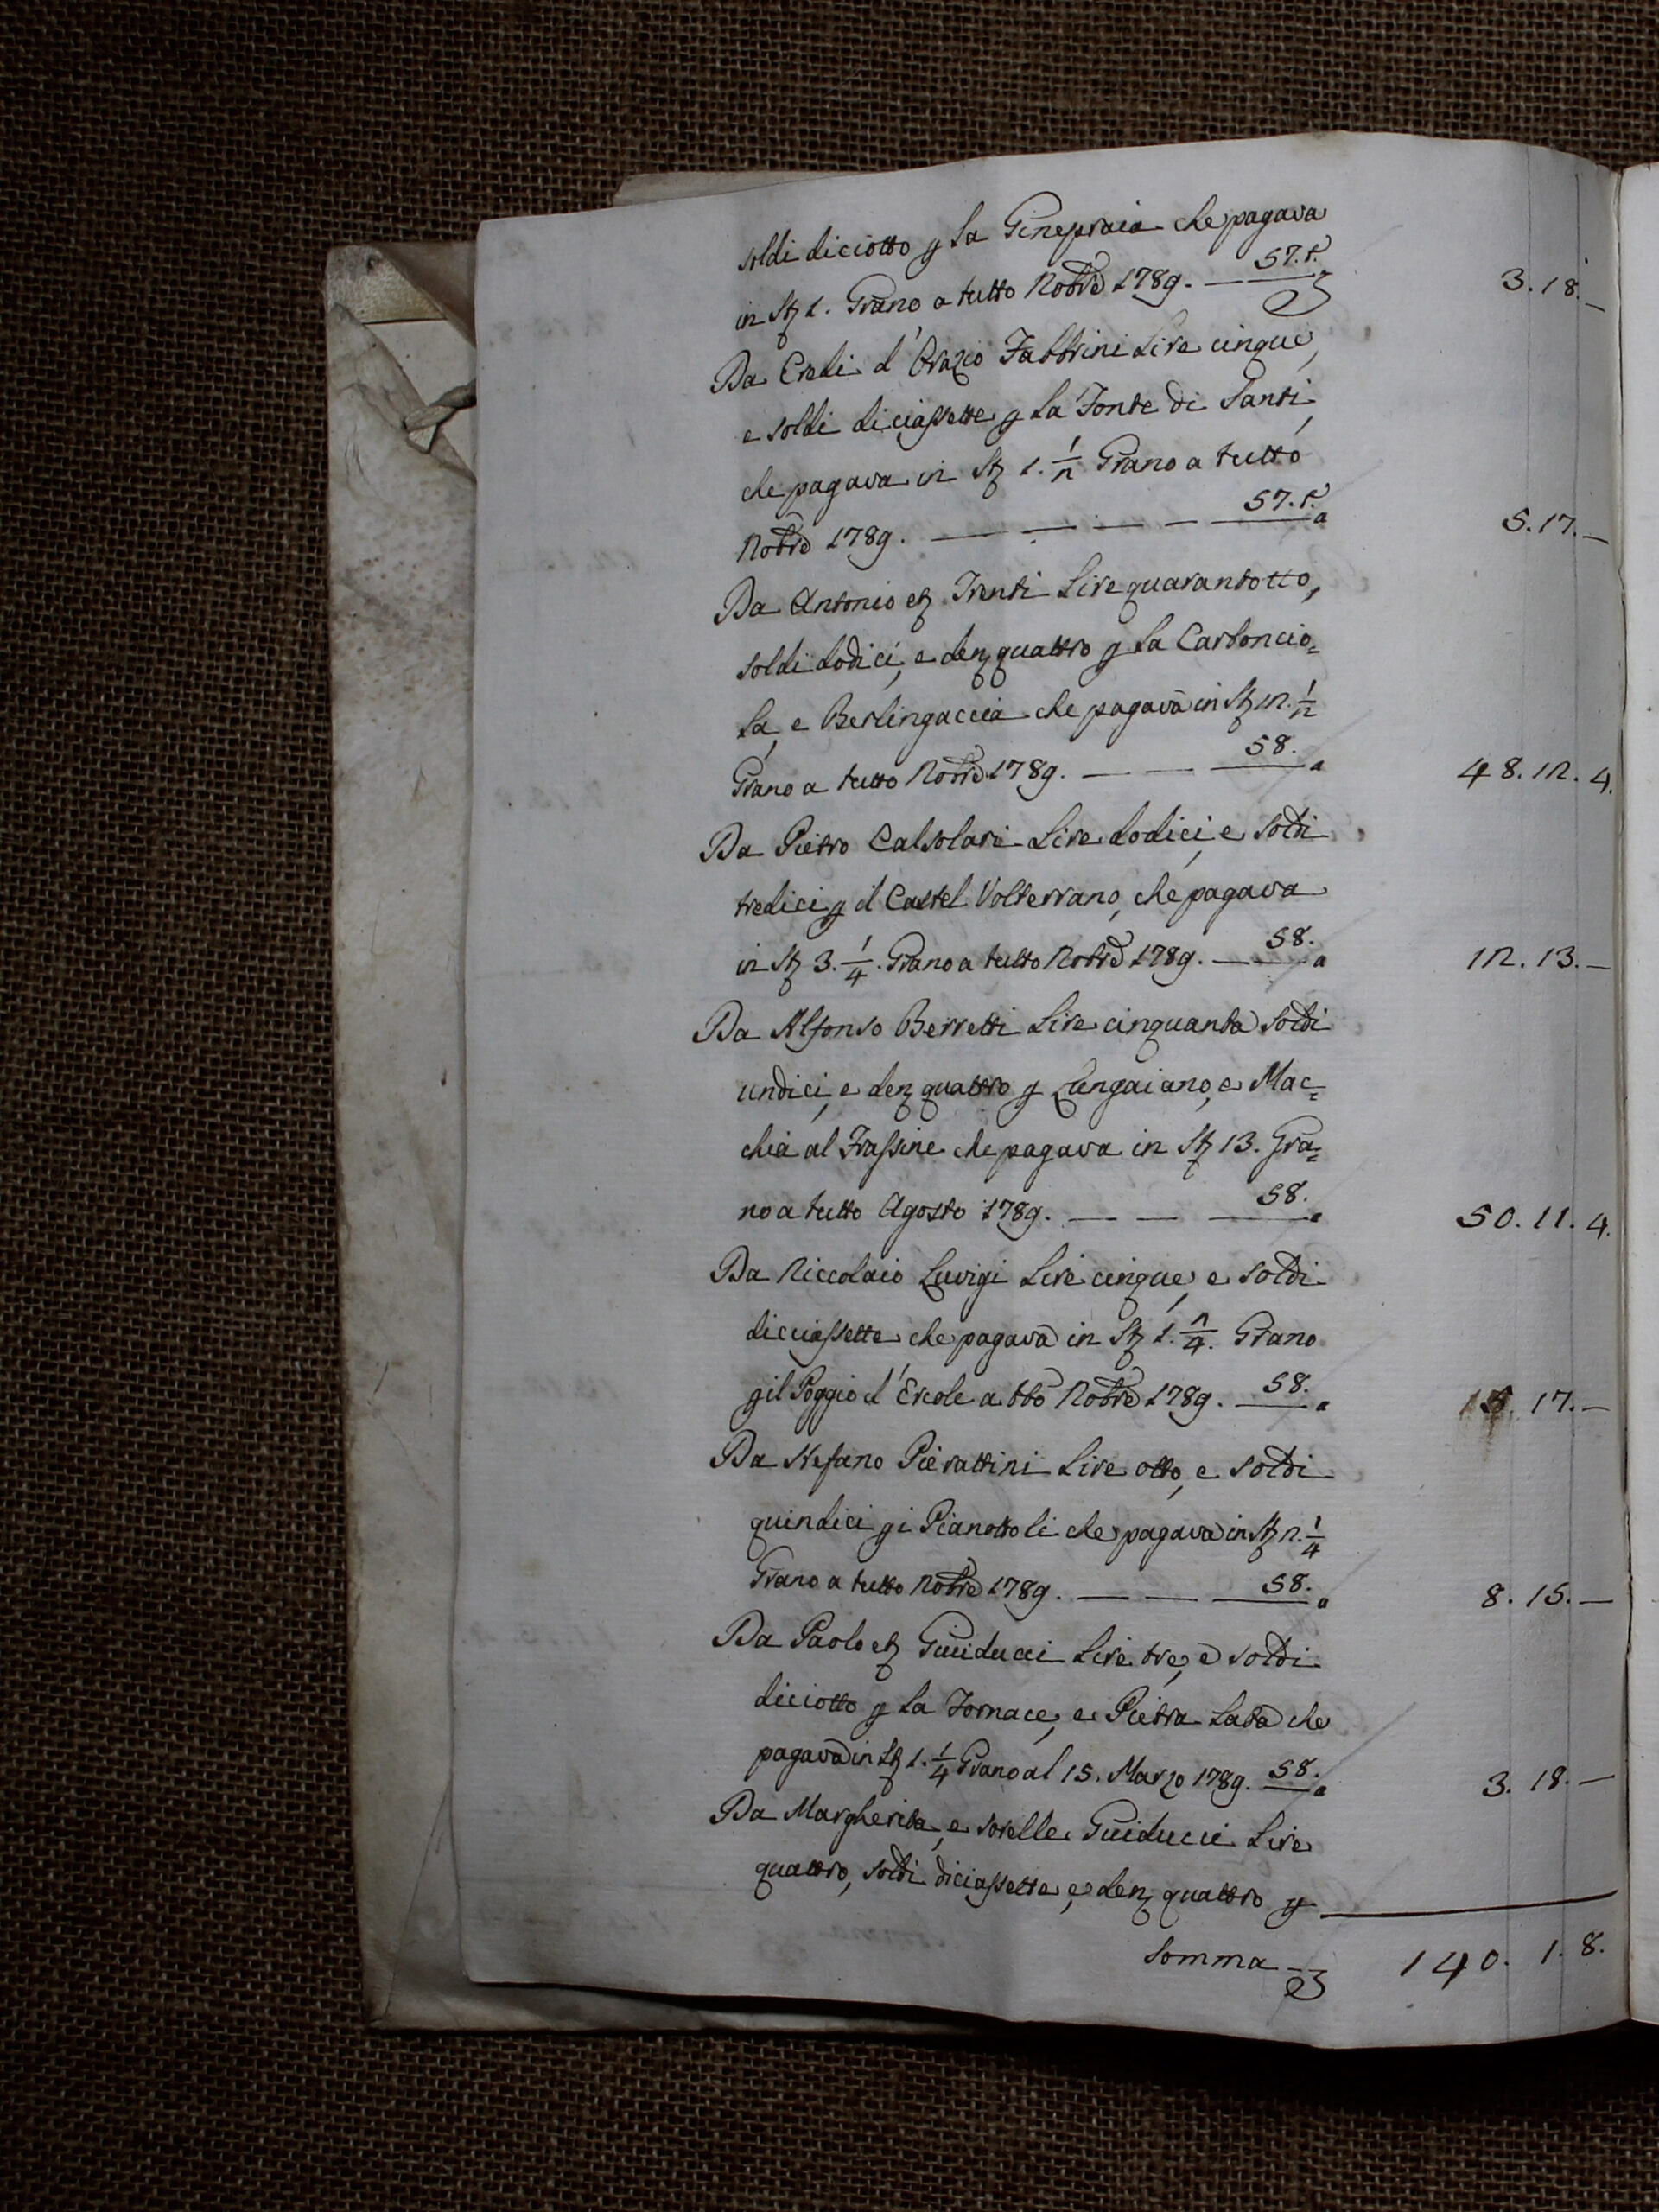 soldi diciotto p la Ginepraia che pagava
in Stz 1. Grano a tutto Nobre 1789. — 57.t. 3.18.—
Da Eredi d'Orazio Fabbrini Lire cinque,
e soldi diciassette p la Fonte di Santi,
che pagava in Stz 1. 1/2 Grano a tutto
Nobre 1789. — — — — 57.t. a 5.17.—
Da Antonio etz Trenti Lire quarantotto,
soldi dodici, e denz quattro p la Carboncio=
la, e Berlingaccia che pagava in Stz 12. 1/2
Grano a tutto Nobre 1789. — — 58. a 48.12.4.
Da Pietro Calsolari Lire dodici, e soldi
tredici p il Castel Volterrano, che pagava
in Stz 3. 1/4. Grano a tutto Nobre 1789. — 58. a 12.13.—
Da Alfonso Berretti Lire cinquanta soldi
undici, e denz quattro p Lungaiano, e Mac=
chia al Frassine che pagava in Stz 13. Gra=
no a tutto Agosto 1789. — — 58. a 50.11.4.
Da Niccolaio Luvigi Lire cinque, e soldi
dicciassette che pagava in Stz 1. 2/4. Grano
p il Poggio d'Ercole a tto Nobre 1789. — 58. a 5.17.—
Da Stefano Pierattini Lire otto, e soldi
quindici p i Pianottoli che pagava in Stz 2. 1/4
Grano a tutto Nobre 1789. — — 58. a 8.15.—
Da Paolo etz Guiducci Lire tre, e soldi
diciotto p la Fornace, e Pietra Lata che
pagava in Stz 1. 1/4 Grano al 15. Marzo 1789. 58. a 3.18.—
Da Margherita, e sorelle Guiducci Lire
quattro, soldi diciassette, e denz quattro p
Somma — 140.1.8.